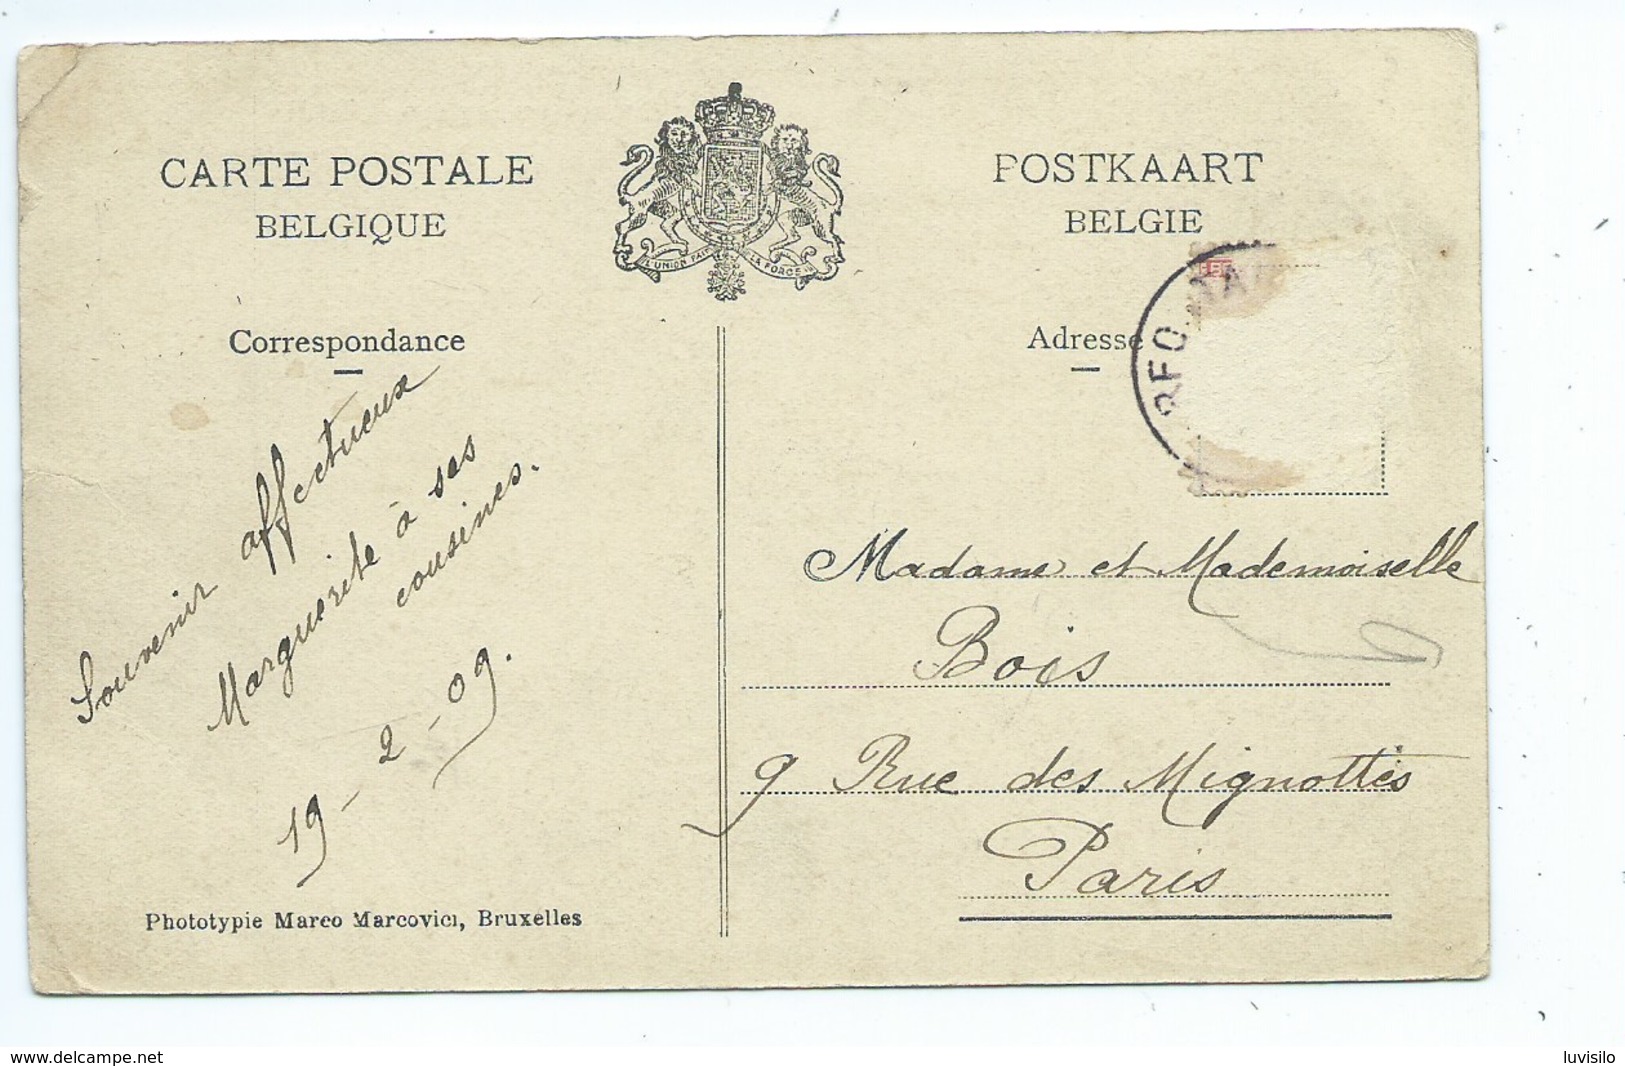 CARTE POSTALE
BELGIQUE
L'UNION FAIT LA FORCE
POSTKAART
BELGIE
Correspondance
Adresse
Souvenir affectueux
Marguerite à ses
cousines.
19-2-09.
Madame et Mademoiselle
Bois
9 Rue des Mignottes
Paris
Phototypie Marco Marcovici, Bruxelles
www.delcampe.net
luvisilo